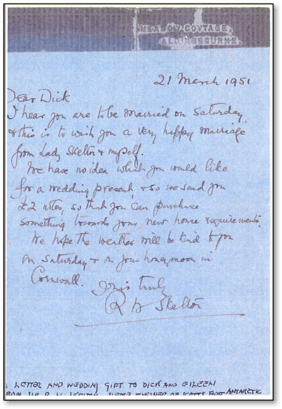 MEADOW COTTAGE,
ALDBOURNE
21 March 1951
Dear Dick
I hear you are to be married on Saturday,
& this is to wish you a very happy marriage
from Lady Skelton & myself.
We have no idea which you would like
for a wedding present, & so we send you
£2 so that you can purchase
something towards your new house requirements.
We hope the weather will be kind to you
on Saturday & on your honeymoon in
Cornwall.
Yours truly
R W Skelton
LETTER AND WEDDING GIFT TO DICK AND EILEEN
ANTARCTIC